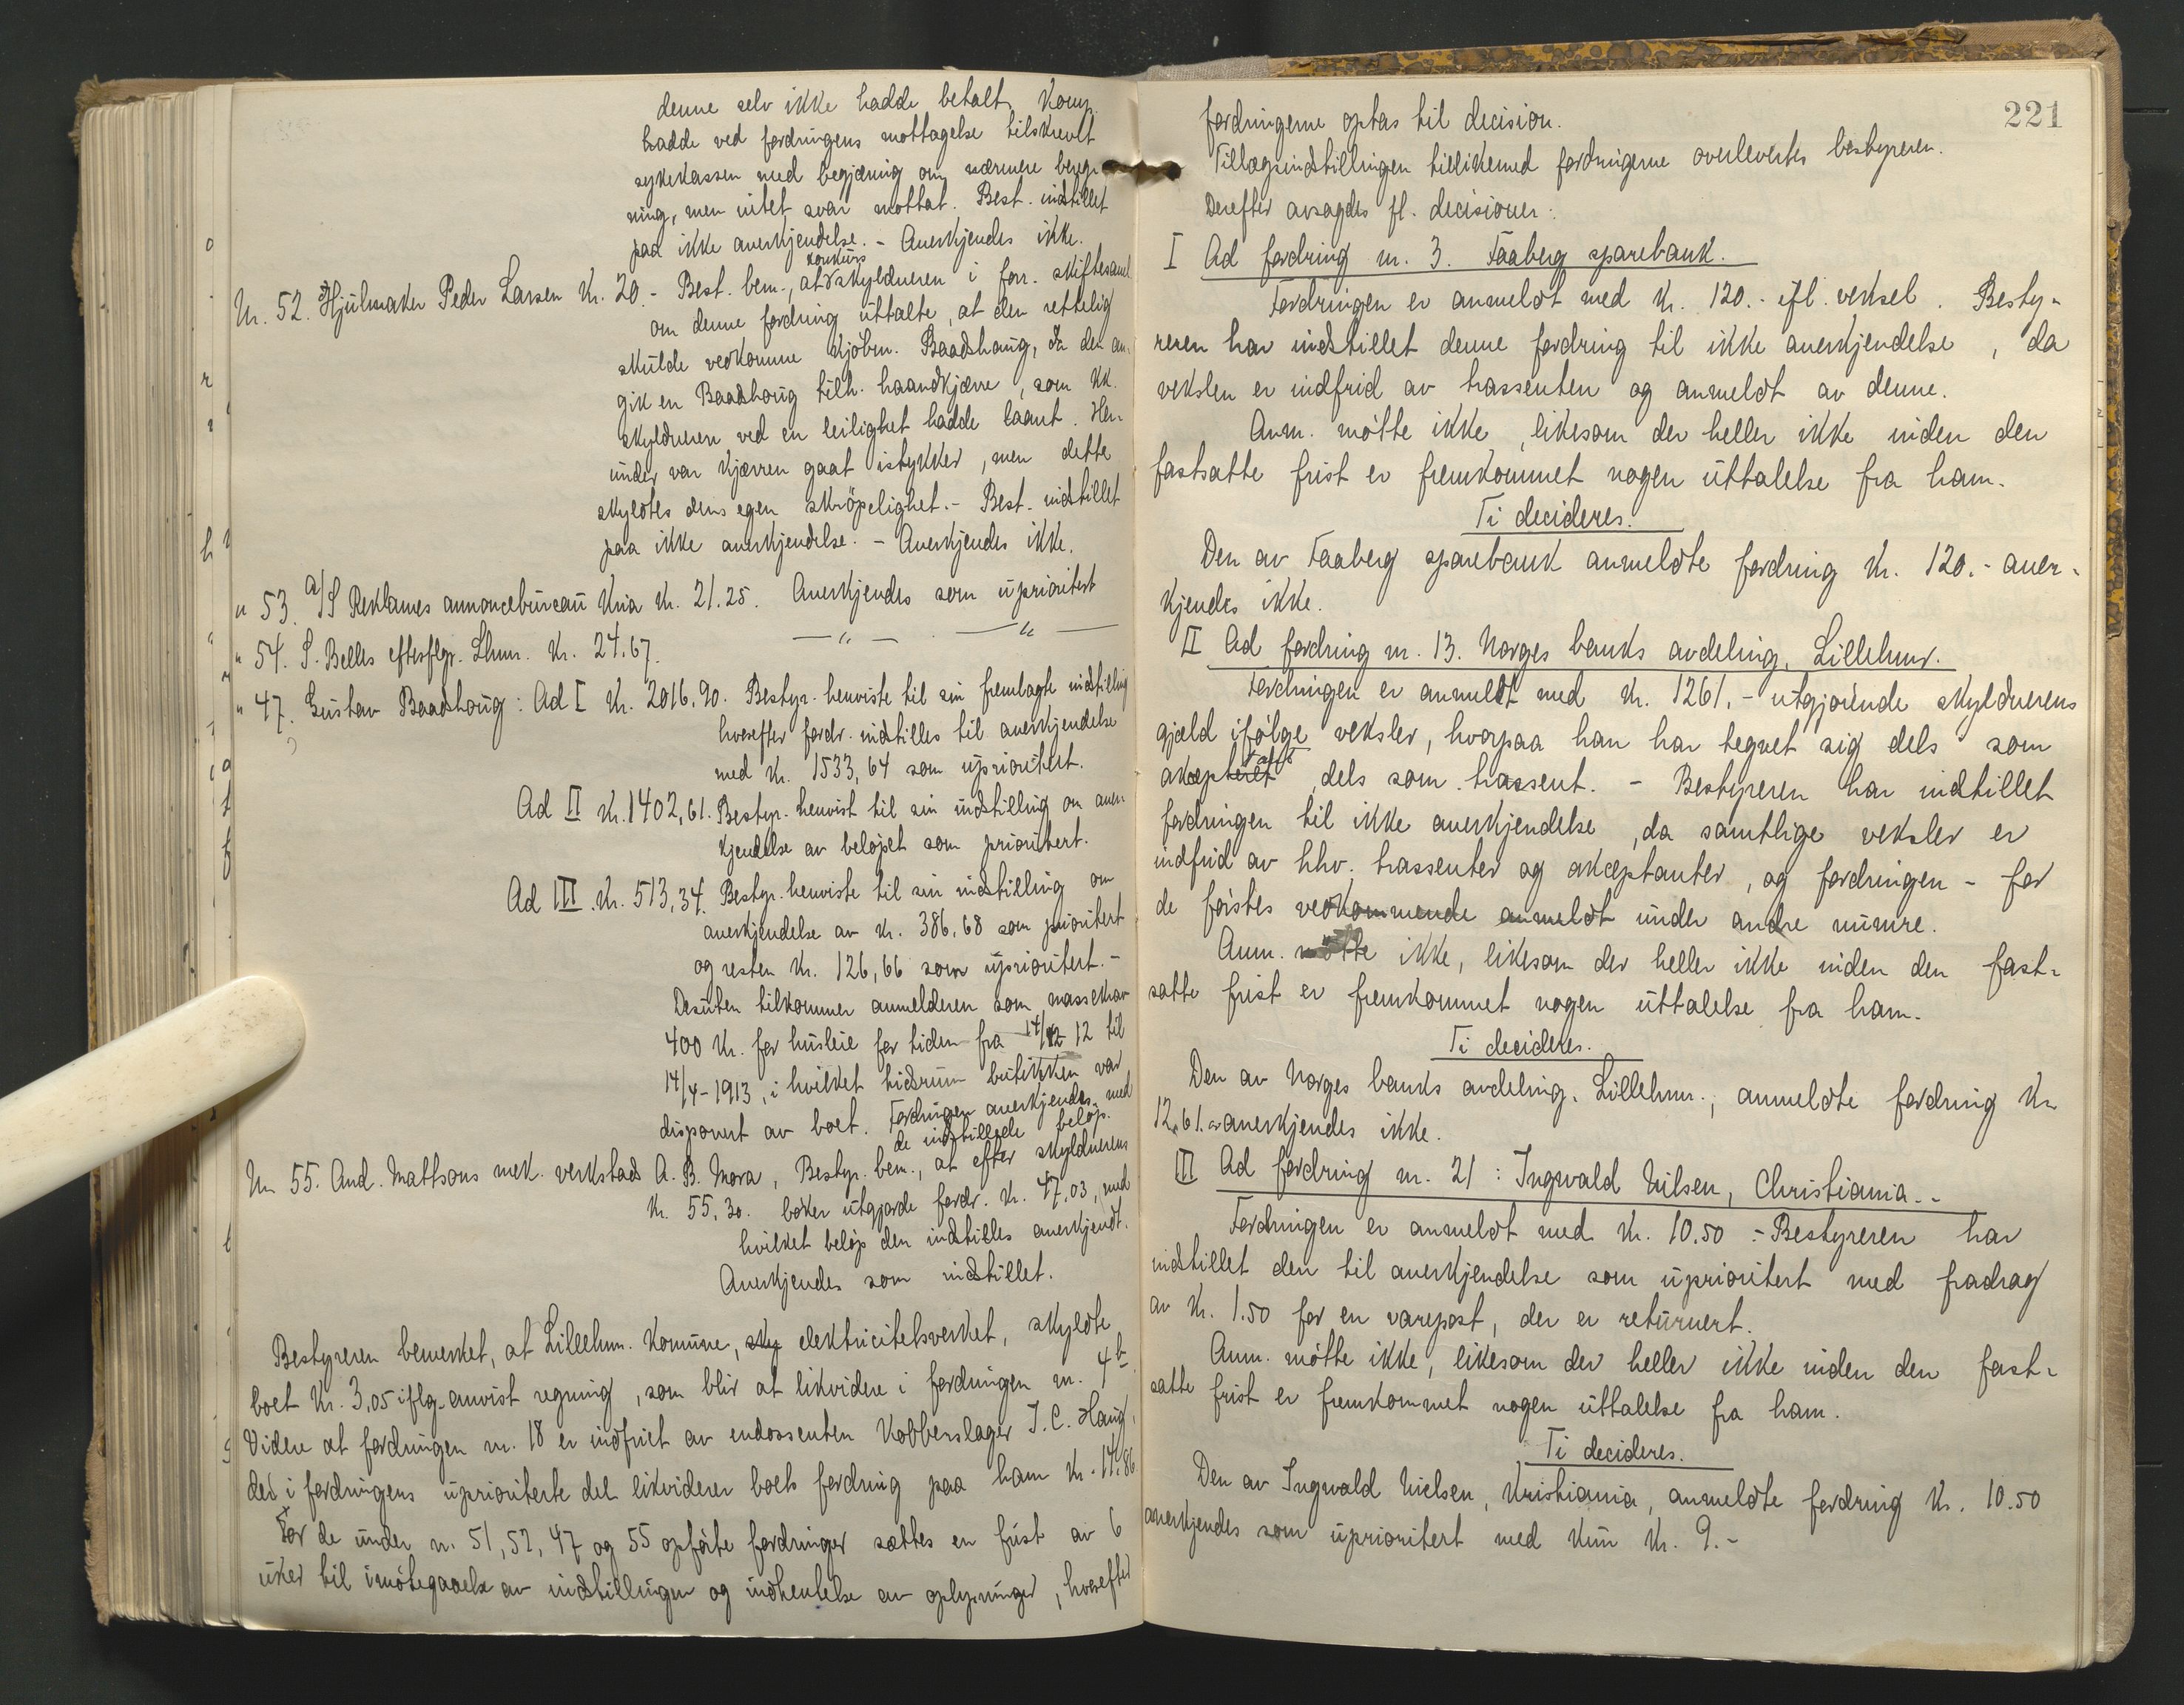 denne selv ikke hadde betalt. Komp.
hadde ved fordringens mottagelse tilskrevet
sykekassen med begjæring om nærmere bereg-
ning, men intet svar mottat. Best. indstillet
paa ikke anerkjendelse. - Anerkjendes ikke.
Nr. 52. Hjulmaker Peder Larsen Kr. 20.- Best. bem., at konkurs skyldneren i forr. skiftesaml.
om denne fordring uttalte, at den rettelig
skulde vedkomme kjøbm. Baadshaug, da den an-
gik en Baadshaug tilh. haandkjærre, som kk.
skyldneren ved en leilighet hadde laant. Her-
under var kjærren gaat istykker, men dette
skyldtes dens egen skrøpelighet. - Best. indstillet
paa ikke anerkjendelse. - Anerkjendes ikke.
" 53. A/S Reklames annoncebureau Kria Kr. 21.25. Anerkjendes som uprioritert
" 54. S. Belles efterflgr. Lhmr. Kr. 24.67. — " — . — " —
" 47. Gustav Baadshaug: Ad I Kr. 2016.90. Bestyr. henviste til sin fremlagte indstilling
hvorefter fordr. indstilles til anerkjendelse
med Kr. 1533,64 som uprioritert.
Ad II Kr. 1402,61. Bestyr. henvist til sin indstilling om aner-
kjendelse av beløpet som prioritert.
Ad III. Kr. 513,34. Bestyr. henviste til sin indstilling om
anerkjendelse av Kr. 386,68 som prioritert
og resten Kr. 126,66 som uprioritert. -
Desuten tilkommer anmelderen som massekrav
400 Kr. for husleie for tiden fra 14/12 12 til
14/4 - 1913, i hvilket tidsrum butikken var
disponert av boet. Fordringen anerkjendes med
de indstillede beløp.
Nr. 55. And. Mattsons mek. verkstad A. B. Mora, Bestyr. bem., at efter skyldnerens
Kr. 55,30. bøker utgjorde fordr. Kr. 47,03, med
hvilket beløp den indstilles anerkjendt.
Anerkjendes som indstillet.
Bestyreren bemerket, at Lillehmr. Komune, sky elektricitetsverket, skyldte
boet Kr. 3,05 iflg. anvist regning, som blir at likvidere i fordringen nr. 4 b
Videre at fordringen nr. 18 er indfriet av endossenten Kobberslager J. C. Haug,
der i fordringens uprioriterte del likviderer boets fordring paa ham Kr. 14.86.
For de under nr. 51, 52, 47 og 55 opførte fordringer sættes en frist av 6
uker til imøtegaaelse av indstillingen og indhentelse av oplysninger, hvorefter
221
fordringerne optas til decision.
Tillægsindstillingen tillikemed fordringerne overlevertes bestyreren.
Derefter avsagdes fl. decisioner:
I Ad fordring nr. 3. Faaberg sparebank.
Fordringen er anmeldt med Kr. 120.- ifl. veksel. Besty-
reren har indstillet denne fordring til ikke anerkjendelse, da
vekslen er indfrid av trassenten og anmeldt av denne.
Anm. møtte ikke, likesom der heller ikke inden den
fastsatte frist er fremkommet nogen uttalelse fra ham.
Ti decideres.
Den av Faaberg sparebank anmeldte fordring Kr. 120.- aner-
kjendes ikke.
II Ad fordring nr. 13. Norges banks avdeling, Lillehmr.
Fordringen er anmeldt med Kr. 1261.- utgjørende skyldnerens
gjæld ifølge veksler, hvorpaa han har tegnet sig dels som
akceptant, dels som trassent. - Bestyreren har indstillet
fordringen til ikke anerkjendelse, da samtlige veksler er
indfrid av hhv. trassenter og akceptanter, og fordringen - for
de førstes vedkommende anmeldt under andre numre.
Anm. møtte ikke, likesom der heller ikke inden den fast-
satte frist er fremkommet nogen uttalelse fra ham.
Ti decideres.
Den av Norges banks avdeling, Lillehmr., anmeldte fordring Kr.
12,61.- anerkjendes ikke.
III Ad fordring nr. 21: Ingwald Nilsen, Christiania.-
Fordringen er anmeldt med Kr. 10.50 - Bestyreren har
indstillet den til anerkjendelse som uprioritert med fradrag
av Kr. 1.50 for en varepost, der er returnert.
Anm. møtte ikke, likesom der heller ikke inden den fast-
satte frist er fremkommet nogen uttalelse fra ham.
Ti decideres.
Den av Ingwald Nielsen, Kristiania, anmeldte fordring Kr. 10.50
anerkjendes som uprioritert med kun Kr. 9.-